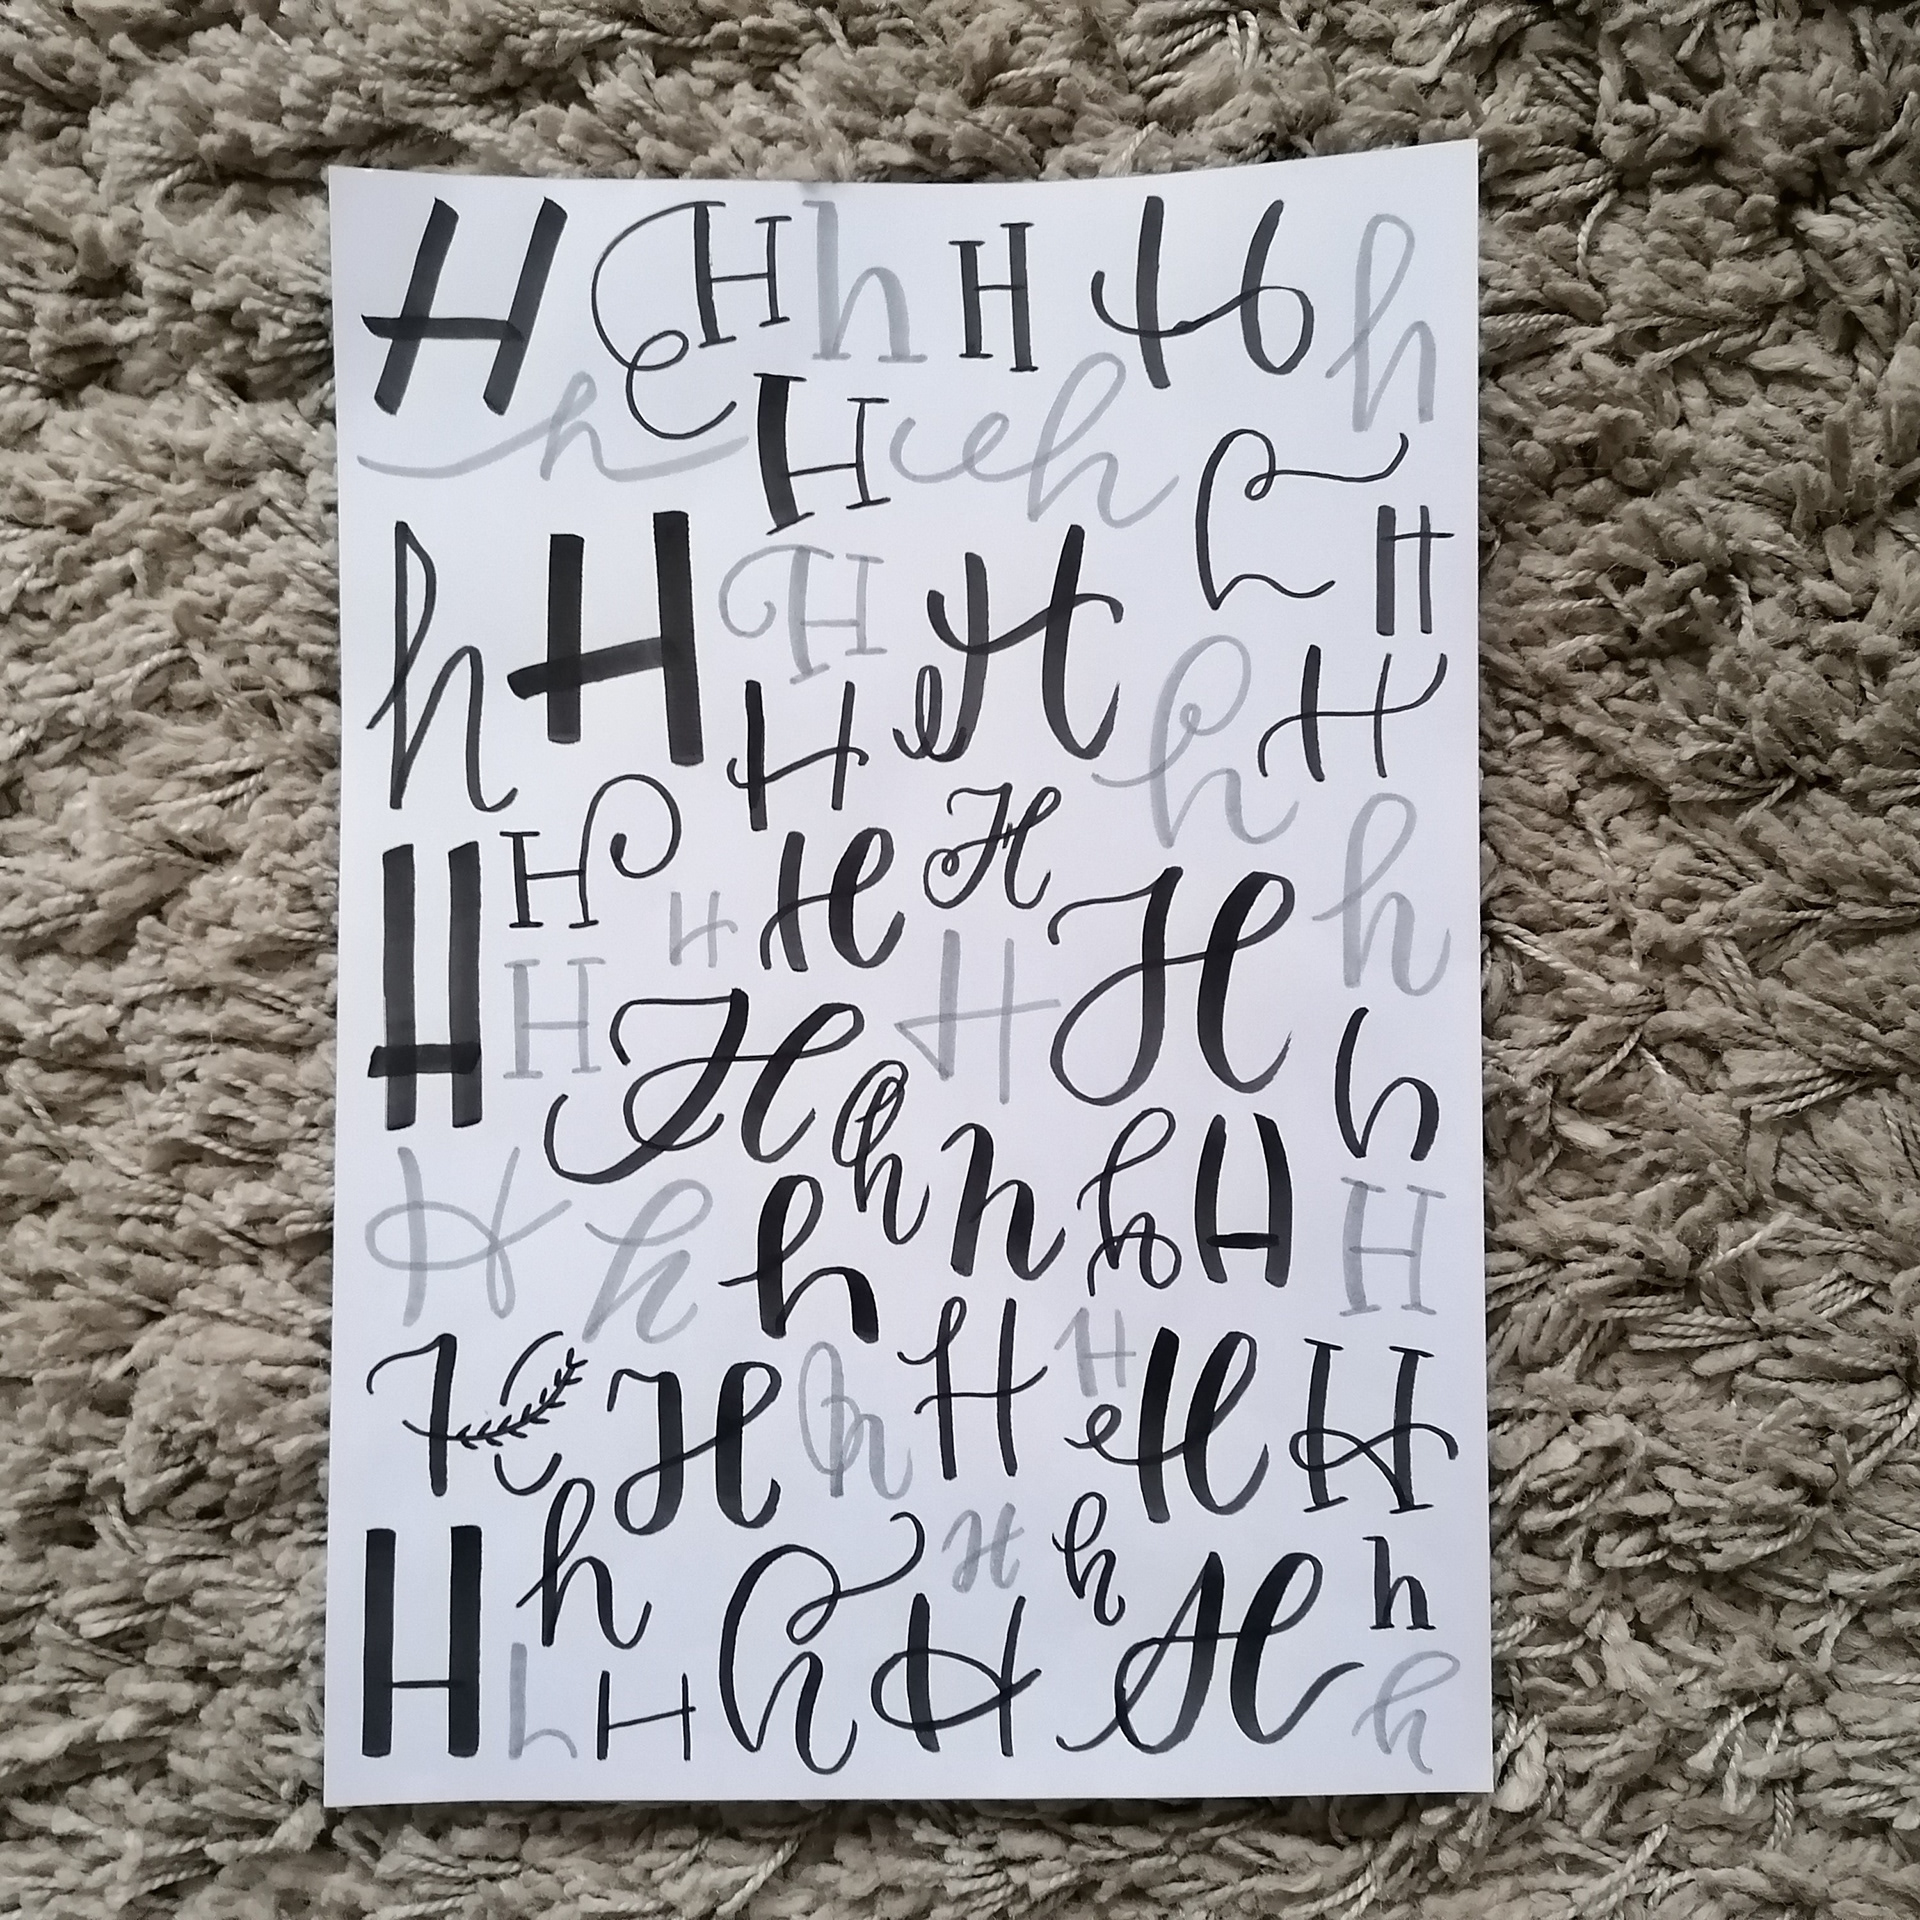 H H h H H h
h H h h H
h H H H H
H h H
H H H H H h
H H H H h
H h h h h h H H
H H h H H H H
H h h H h H h
h H h H h